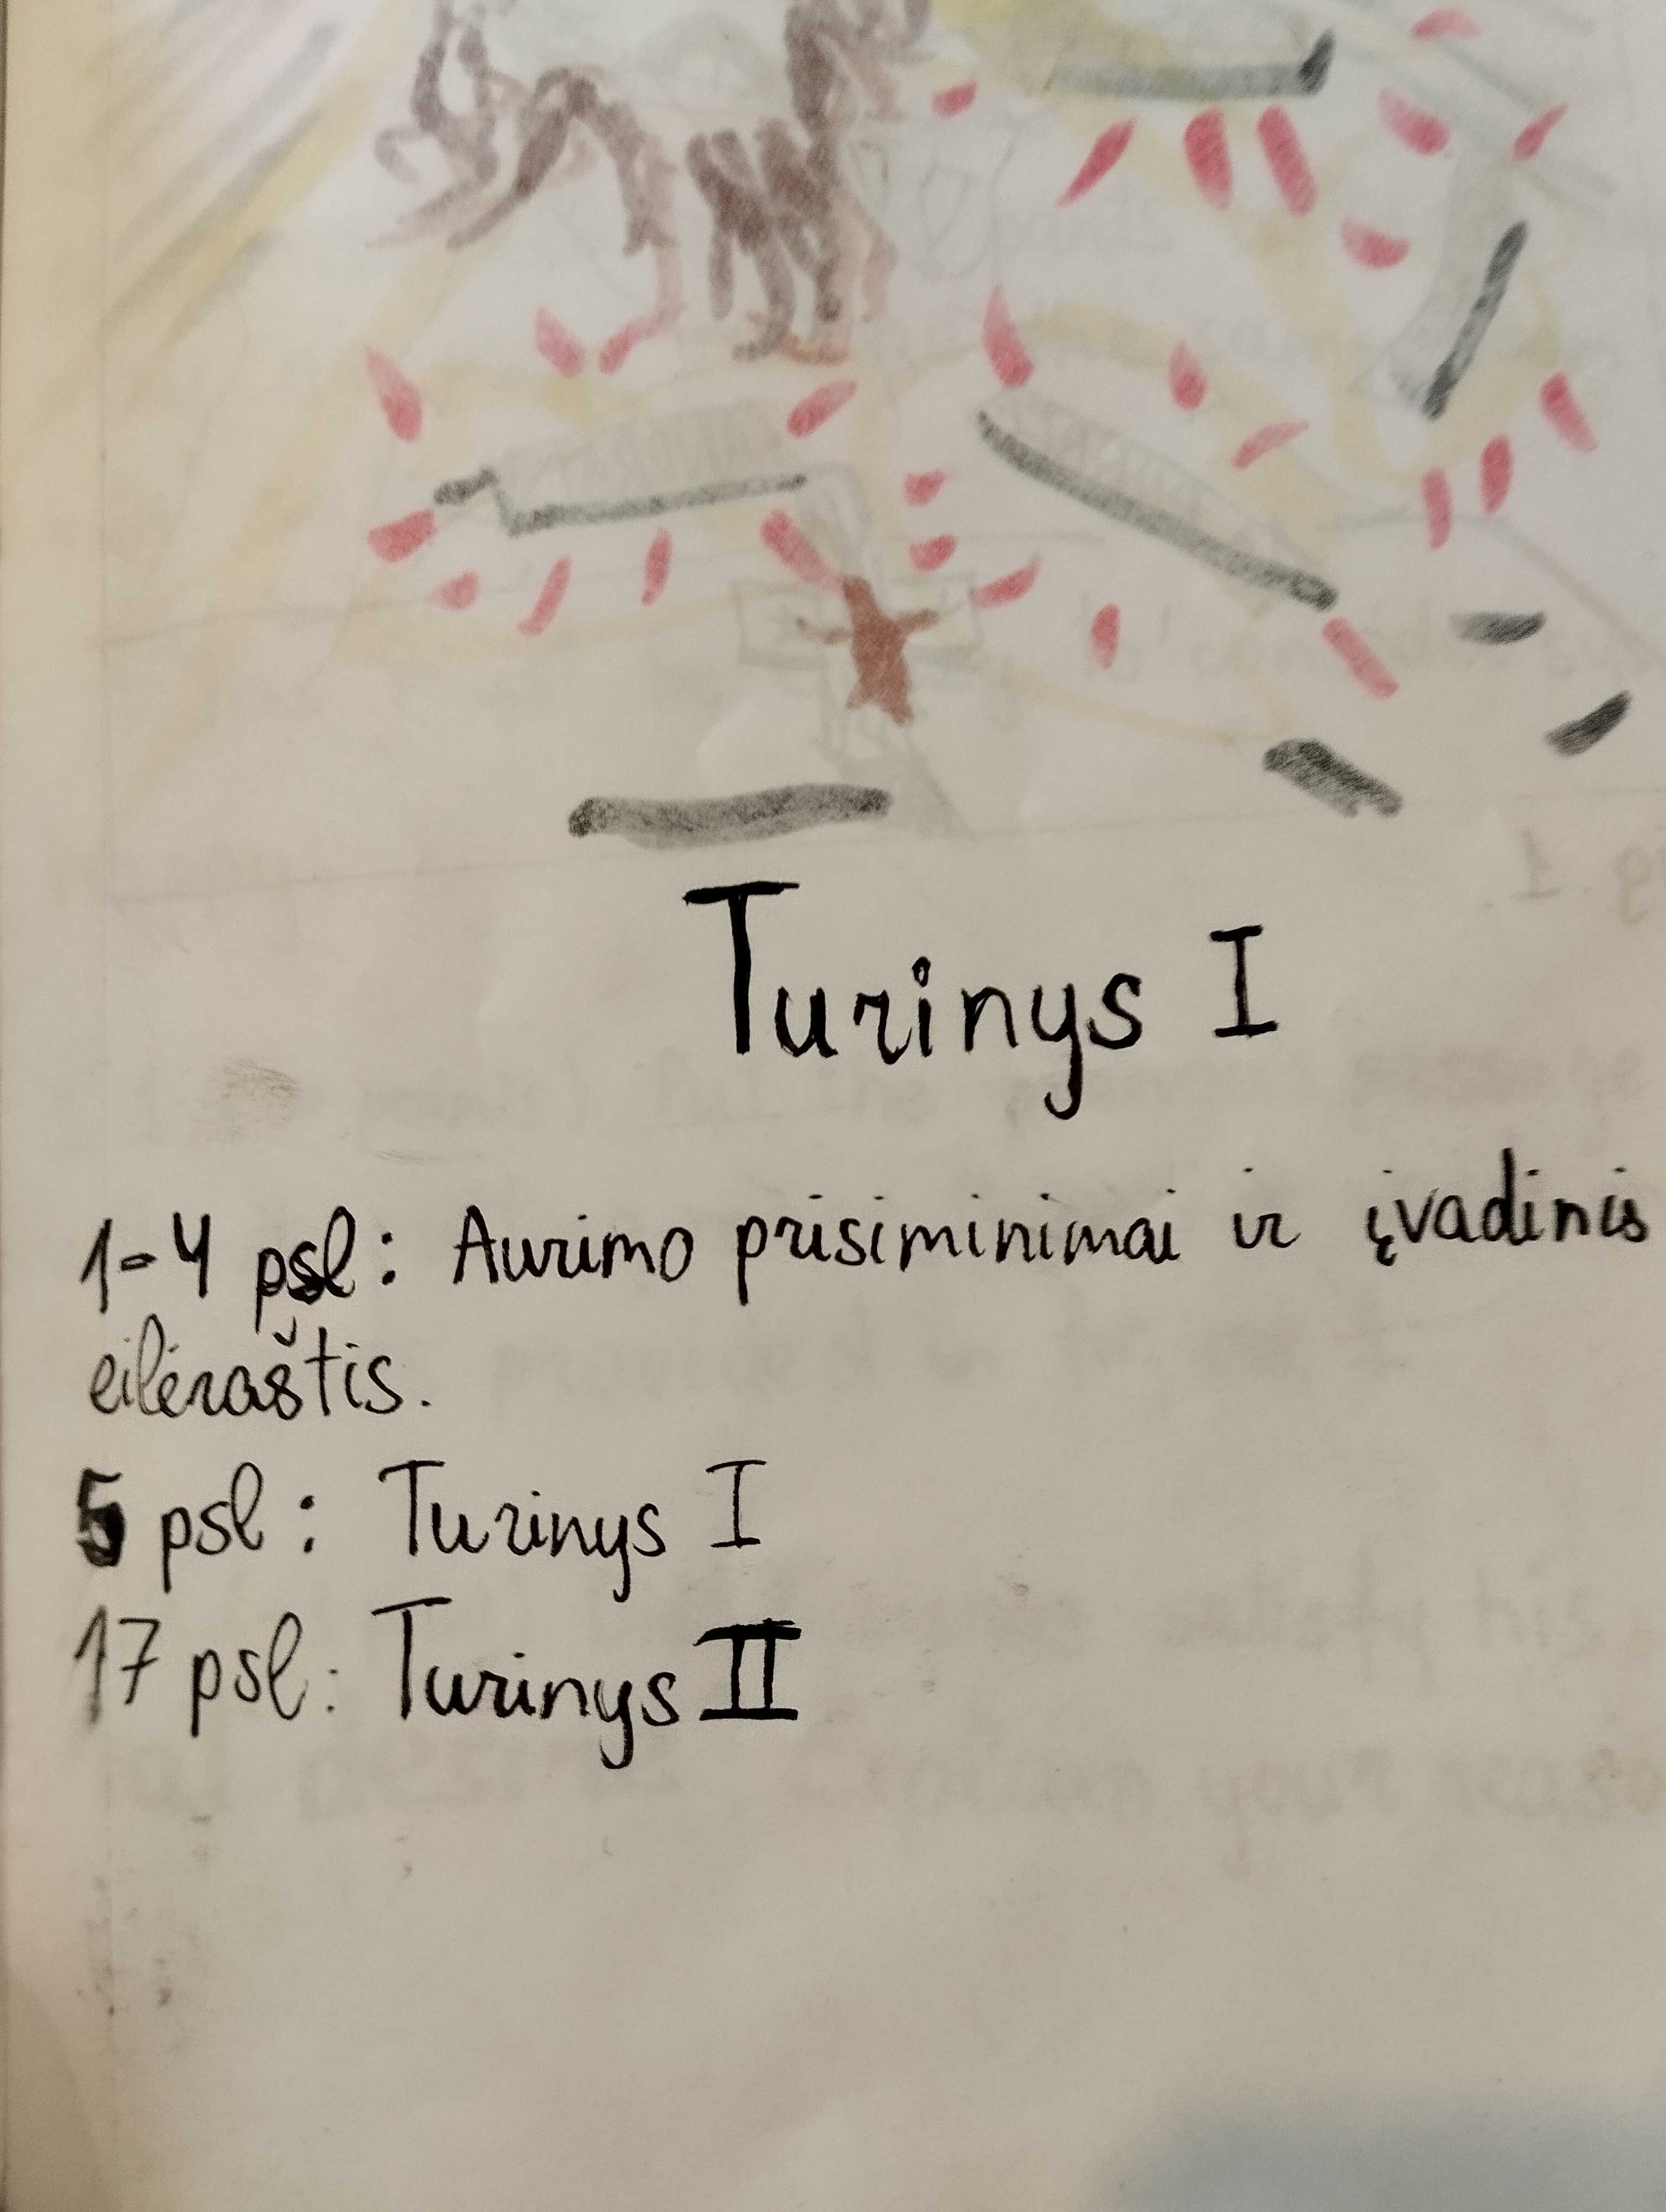 Turinys I
1-4 psl: Aurimo prisiminimai ir įvadinis
eilėraštis.
5 psl: Turinys I
17 psl: Turinys II